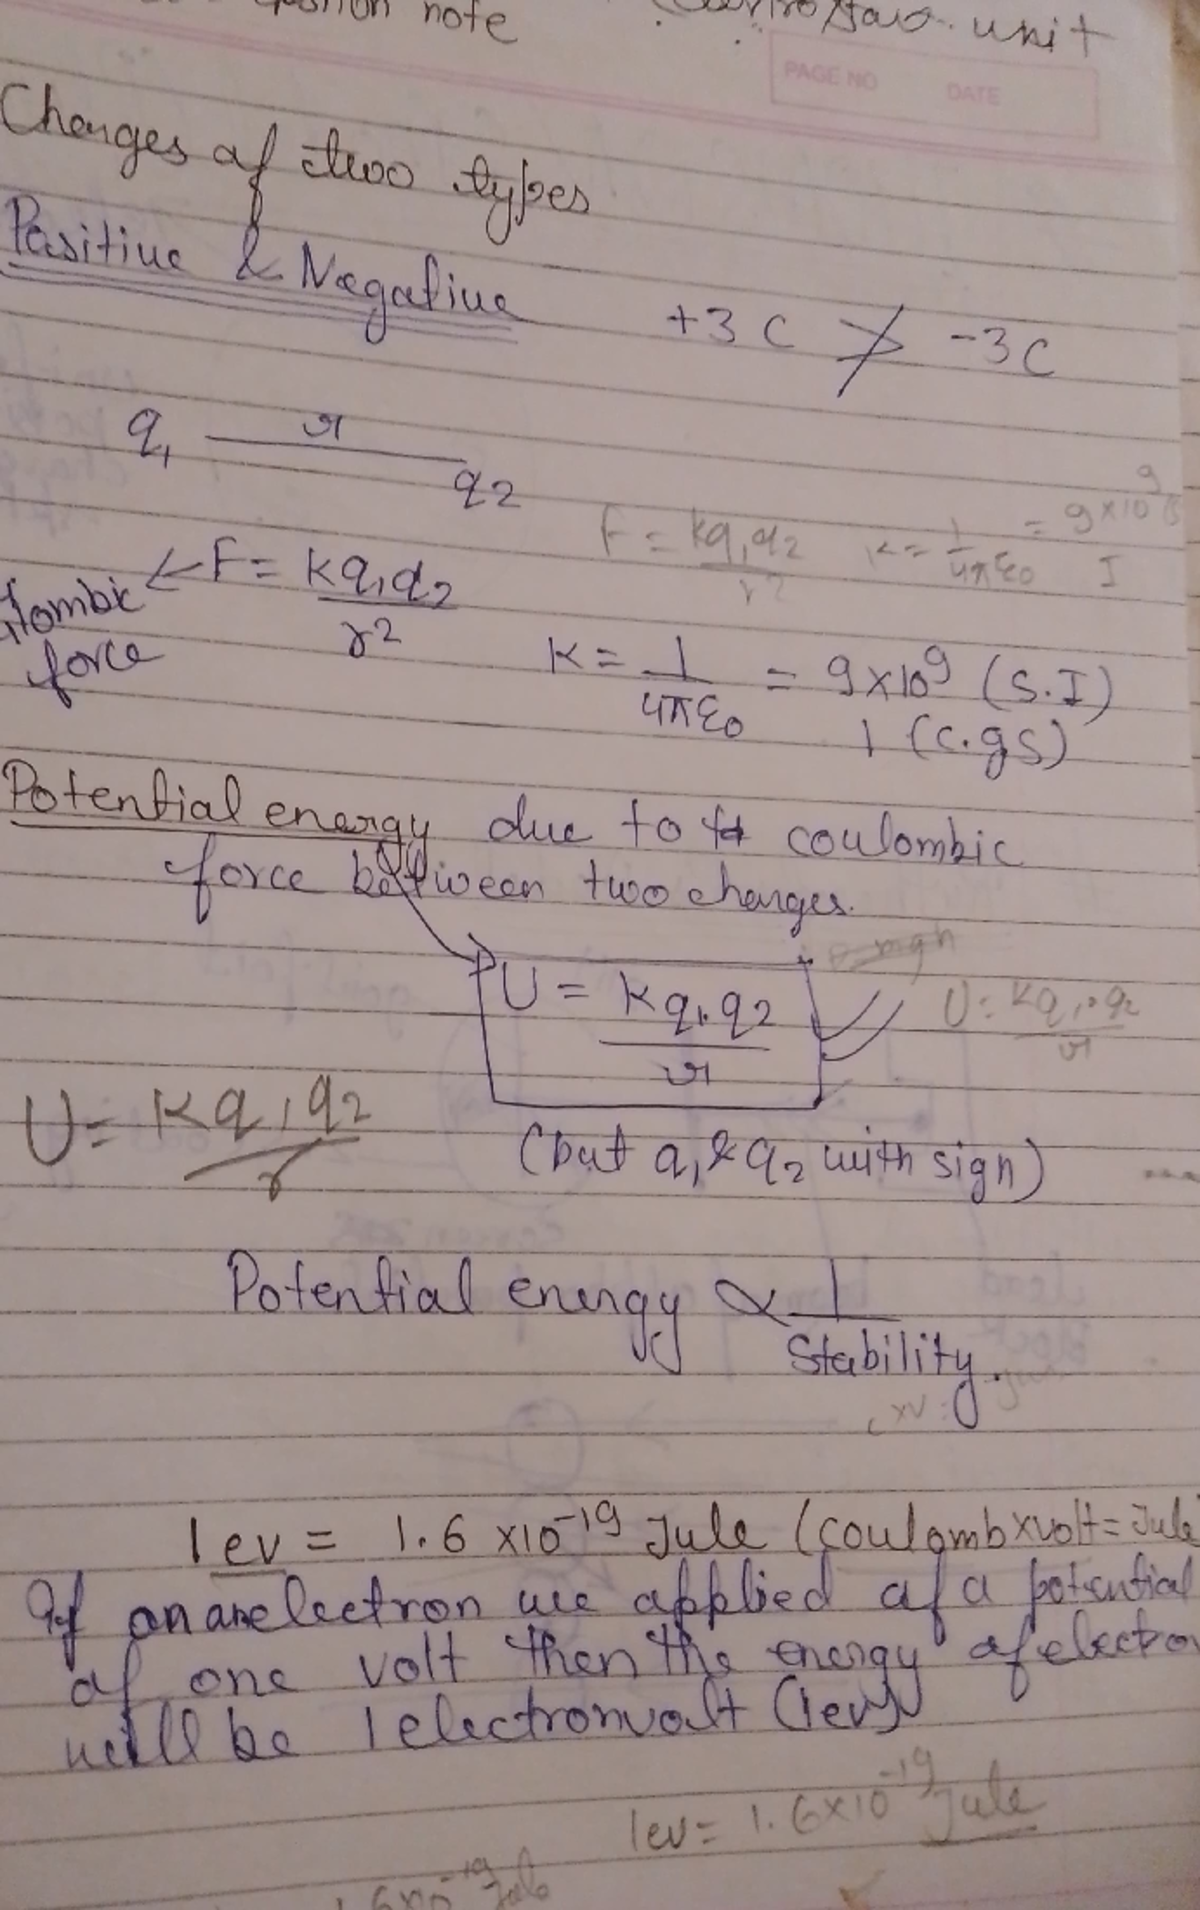 note unit
PAGE NO DATE
Charges of two types
Positive & Negative
+3 C ≯ -3C
q1 r q2
F = kq1q2 / r2 K = 1 / 4πε0 = 9×10^9
I
← F = kq1q2 / r2
force
K = 1 / 4πε0 = 9×10^9 (S.I)
1 (C.gs)
Potential energy due to coulombic
force between two charges.
mgh
U = kq1.q2 / r
U = kq1.q2 / r
U = kq1q2 / r
(but q1 & q2 with sign)
Potential energy ∝ 1 / Stability.
1 ev = 1.6 ×10^-19 Jule (coulomb×volt = Jule
If an an electron we applied of a potential
of one volt then the energy of electro
will be 1 electronvolt (1ev)
1ev = 1.6×10^-19 Jule